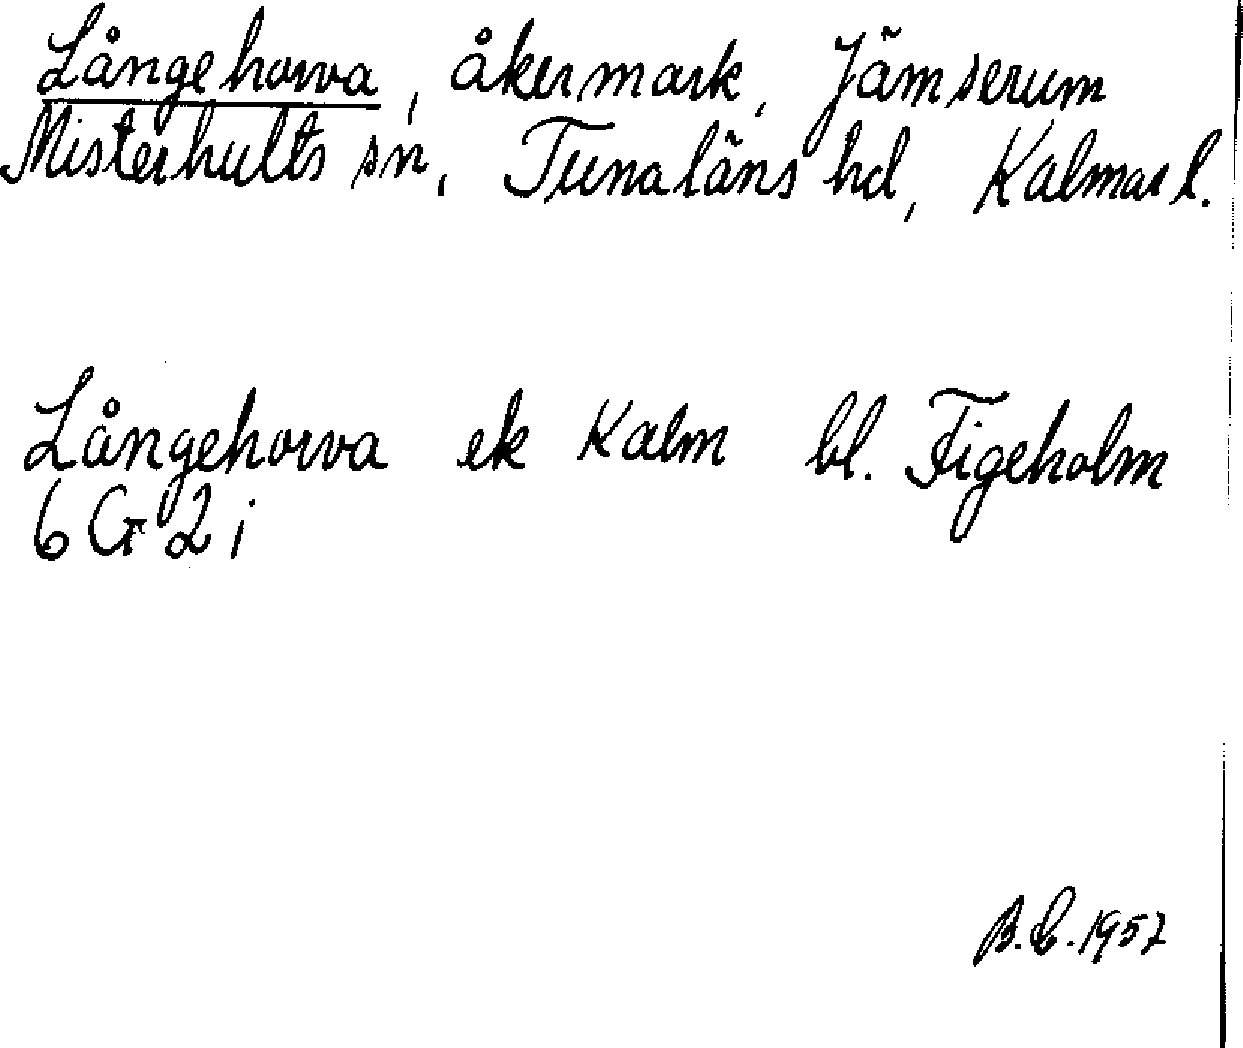 Långehorva, åkermark, Jämserum
Misterhults sn, Tunaläns hd, Kalmar l.
Långehorva ek Kalm bl. Figeholm
6 G 2 i
B.E. 1957